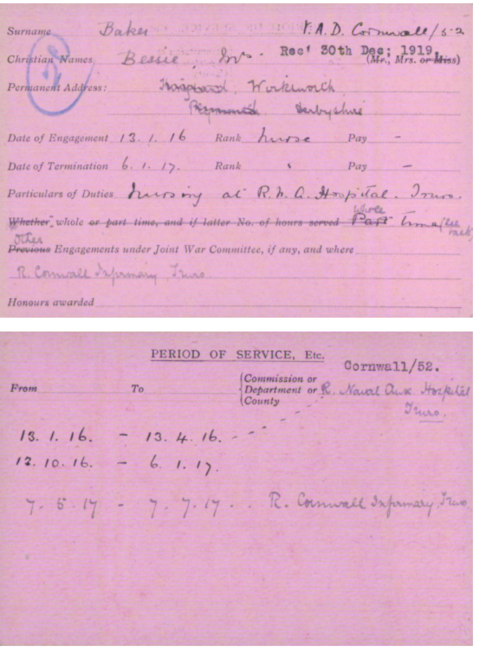 Surname Baker V.A.D. Cornwall/52
Rec' 30th Dec; 1919.
Christian Names Bessie, (Mr., Mrs. or Miss)
Permanent Address: Workworth
Plymouth Derbyshire
Date of Engagement 13.1.16 Rank Nurse Pay -
Date of Termination 6.1.17. Rank " Pay -
Particulars of Duties Nursing at R.N.A. Hospital. Truro.
whole
Whether, whole or part time, and if latter No. of hours served Part time (see back)
other
Previous Engagements under Joint War Committee, if any, and where
R. Cornwall Infirmary Truro
Honours awarded
PERIOD OF SERVICE, Etc.
Cornwall/52.
From To (Commission or Department or County R. Naval Aux. Hospital
Truro.
13.1.16. - 13.4.16. - -
12.10.16. - 6.1.17.
7.5.17 - 7.7.17. . R. Cornwall Infirmary, Truro